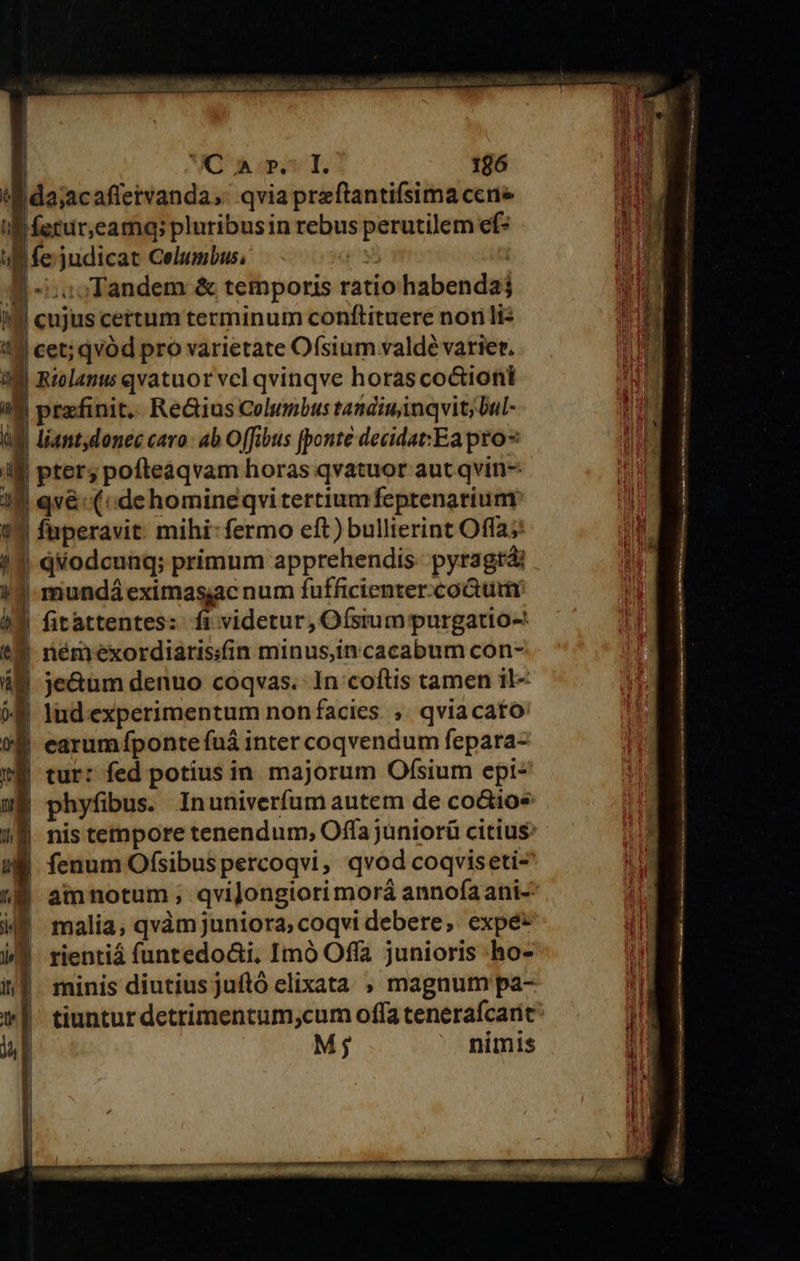 CAP. I. 186
da, ac asservanda, qvia præstantissima cen-
setur, eamq; pluribus in rebus perutilem es-
se judicat Columbus.
Tandem & temporis ratio habenda;
cujus certum terminum constituere non li-
cet; qvòd pro varietate Ossium valdè variet.
Riolanus qvatuor vel qvinqve horas coctioni
præfinit. Rectius Columbus tandiu, inqvit, bul-
liant, donec caro ab Ossibus sponte decidat: Ea pro-
pter, posteaqvam horas qvatuor aut qvin-
qve (de homine qvi tertium septenarium
superavit mihi sermo est) bullierint Ossa,
qvodcunq; primum apprehendis pyragrâ
mundâ eximas, ac num sufficienter coctum
sit attentes: si videtur, Ossium purgatio-
nem exordiaris; sin minus, in cacabum con-
jectum denuo coqvas. In costis tamen il-
lud experimentum non facies, qvia caro
earum sponte suâ inter coqvendum separa-
tur: sed potius in majorum Ossium epi-
physibus. In universum autem de coctio-
nis tempore tenendum, Ossa juniorū citius
senum Ossibus percoqvi, qvod coqvis eti-
am notum; qvi longiori morâ annosa ani-
malia, qvàm juniora, coqvi debere, expe-
rientiâ sunt edocti. Imò Ossa junioris ho-
minis diutius justò elixata, magnum pa-
tiuntur detrimentum, cum ossa tenerascant
M 5 nimis